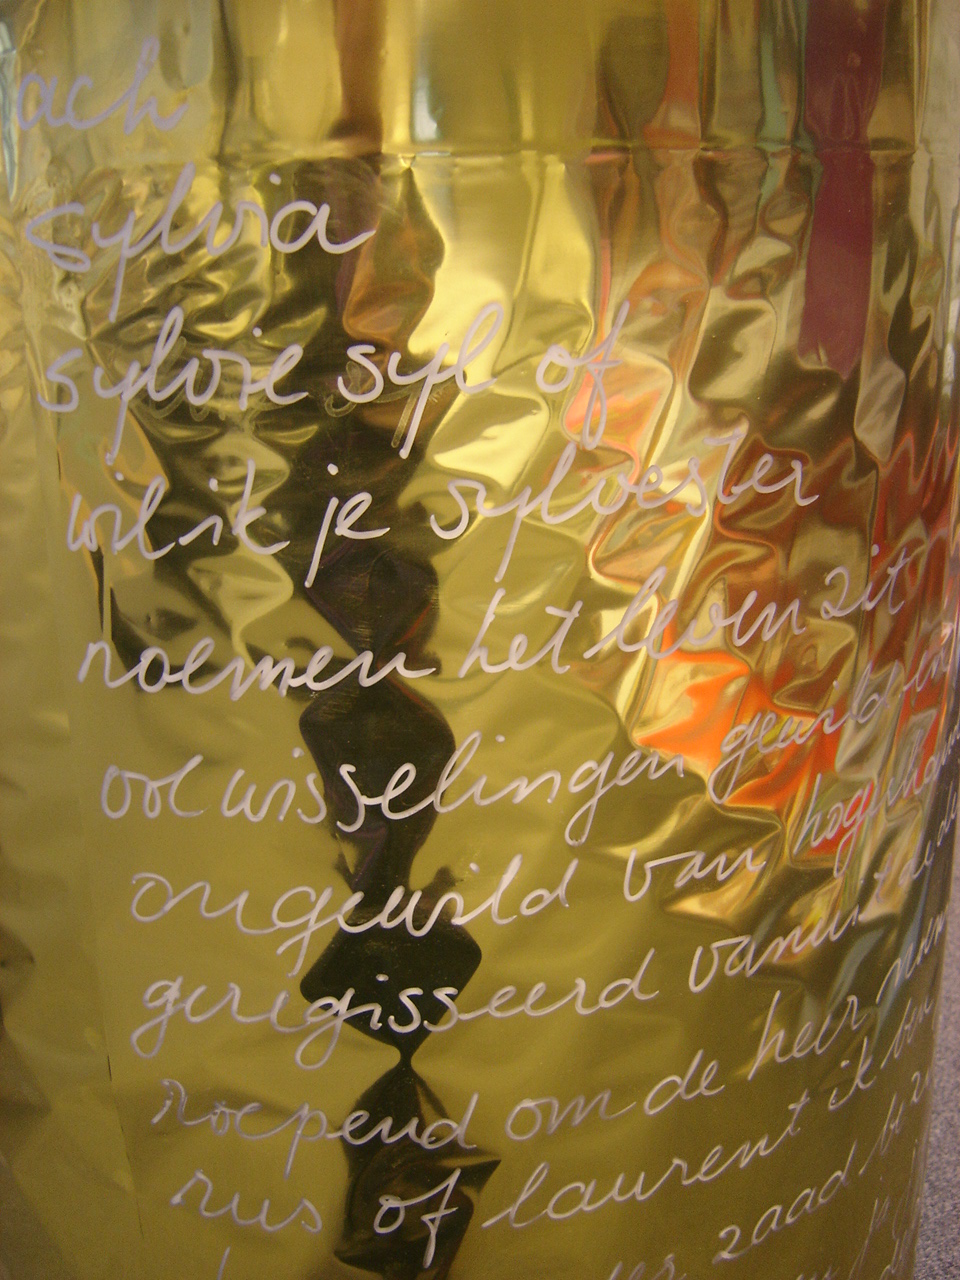 ach
sylvia
sylvie syl of
wil ik je sylvester
noemen het leven zit
vol wisselingen gewild en
ongewild van
geregisseerd vanuit de
roepend om de heer
rus of laurent ik ben
zaad